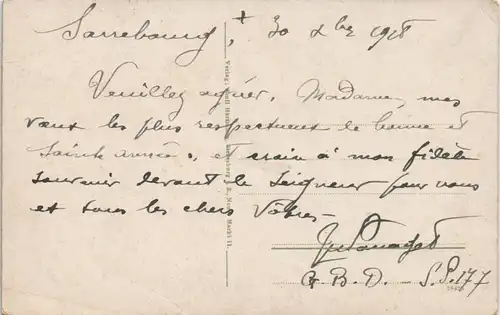 Sarrebourg, + 30 Xbre 1918
Veuillez agréer, Madame, mes
vœux les plus respectueux de bonne et
sainte année, et croire à mon fidèle
souvenir devant le Seigneur pour vous
et tous les chers Vôtres –
G. B. D. – S.P. 177
Verlag